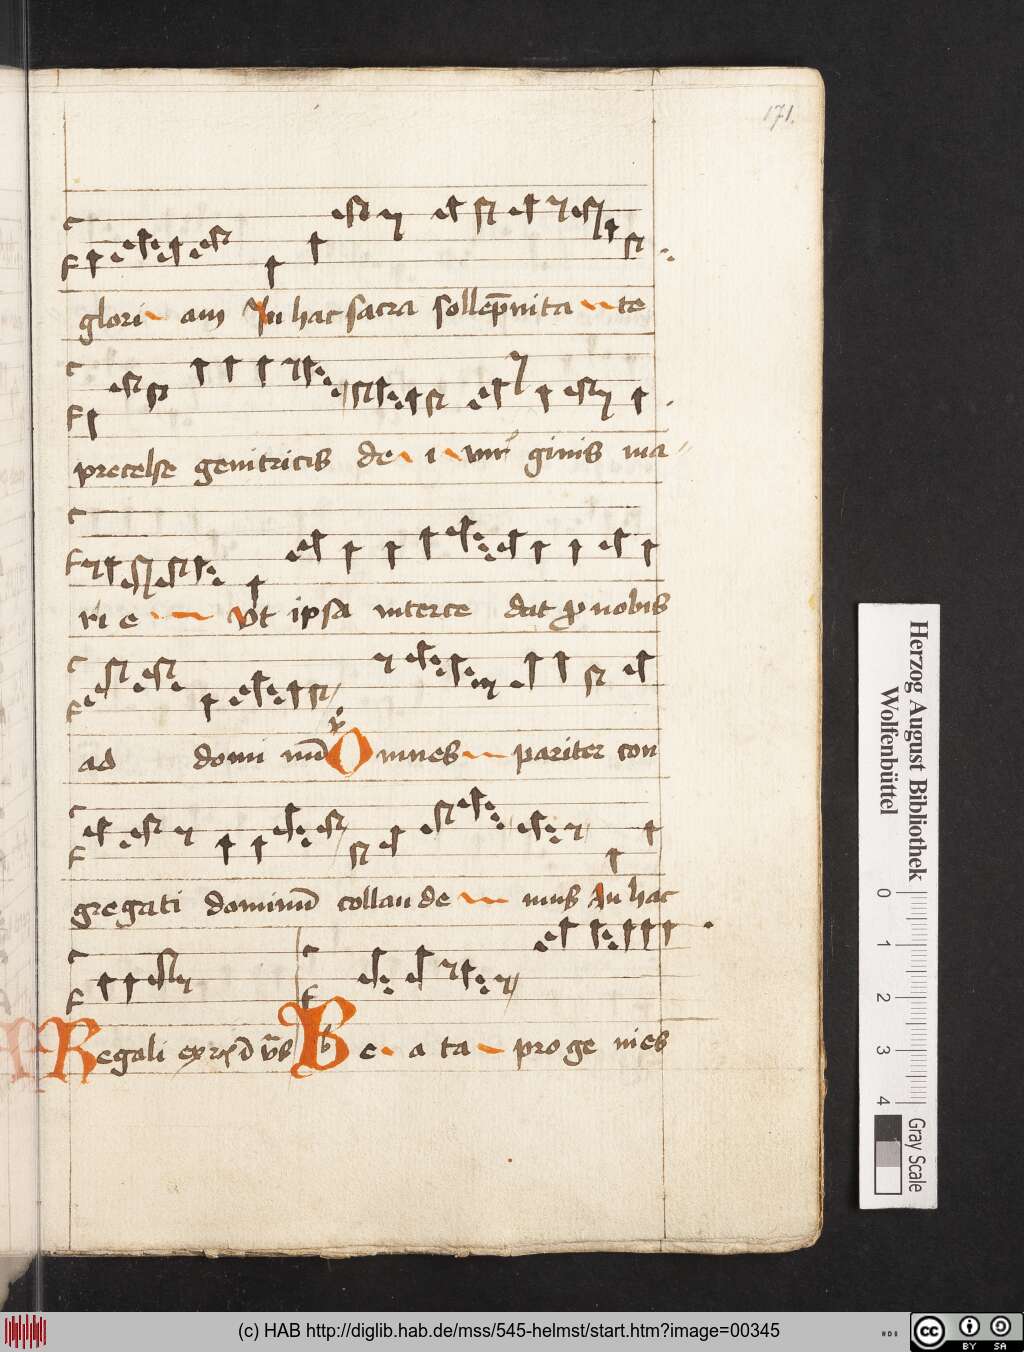 171.
glori am In hac sacra sollep̄nita te
precelse genitricis de i vir ginis ma
ri e Vt ipsa interce dat p nobis
ad domi nū Omnes pariter con
gregati dominū collau de mus In hac
Regali ex Be a ta proge nies
Herzog August Bibliothek
Wolfenbüttel
0 1 2 3 4
Gray Scale
(c) HAB http://diglib.hab.de/mss/545-helmst/start.htm?image=00345
cc BY SA